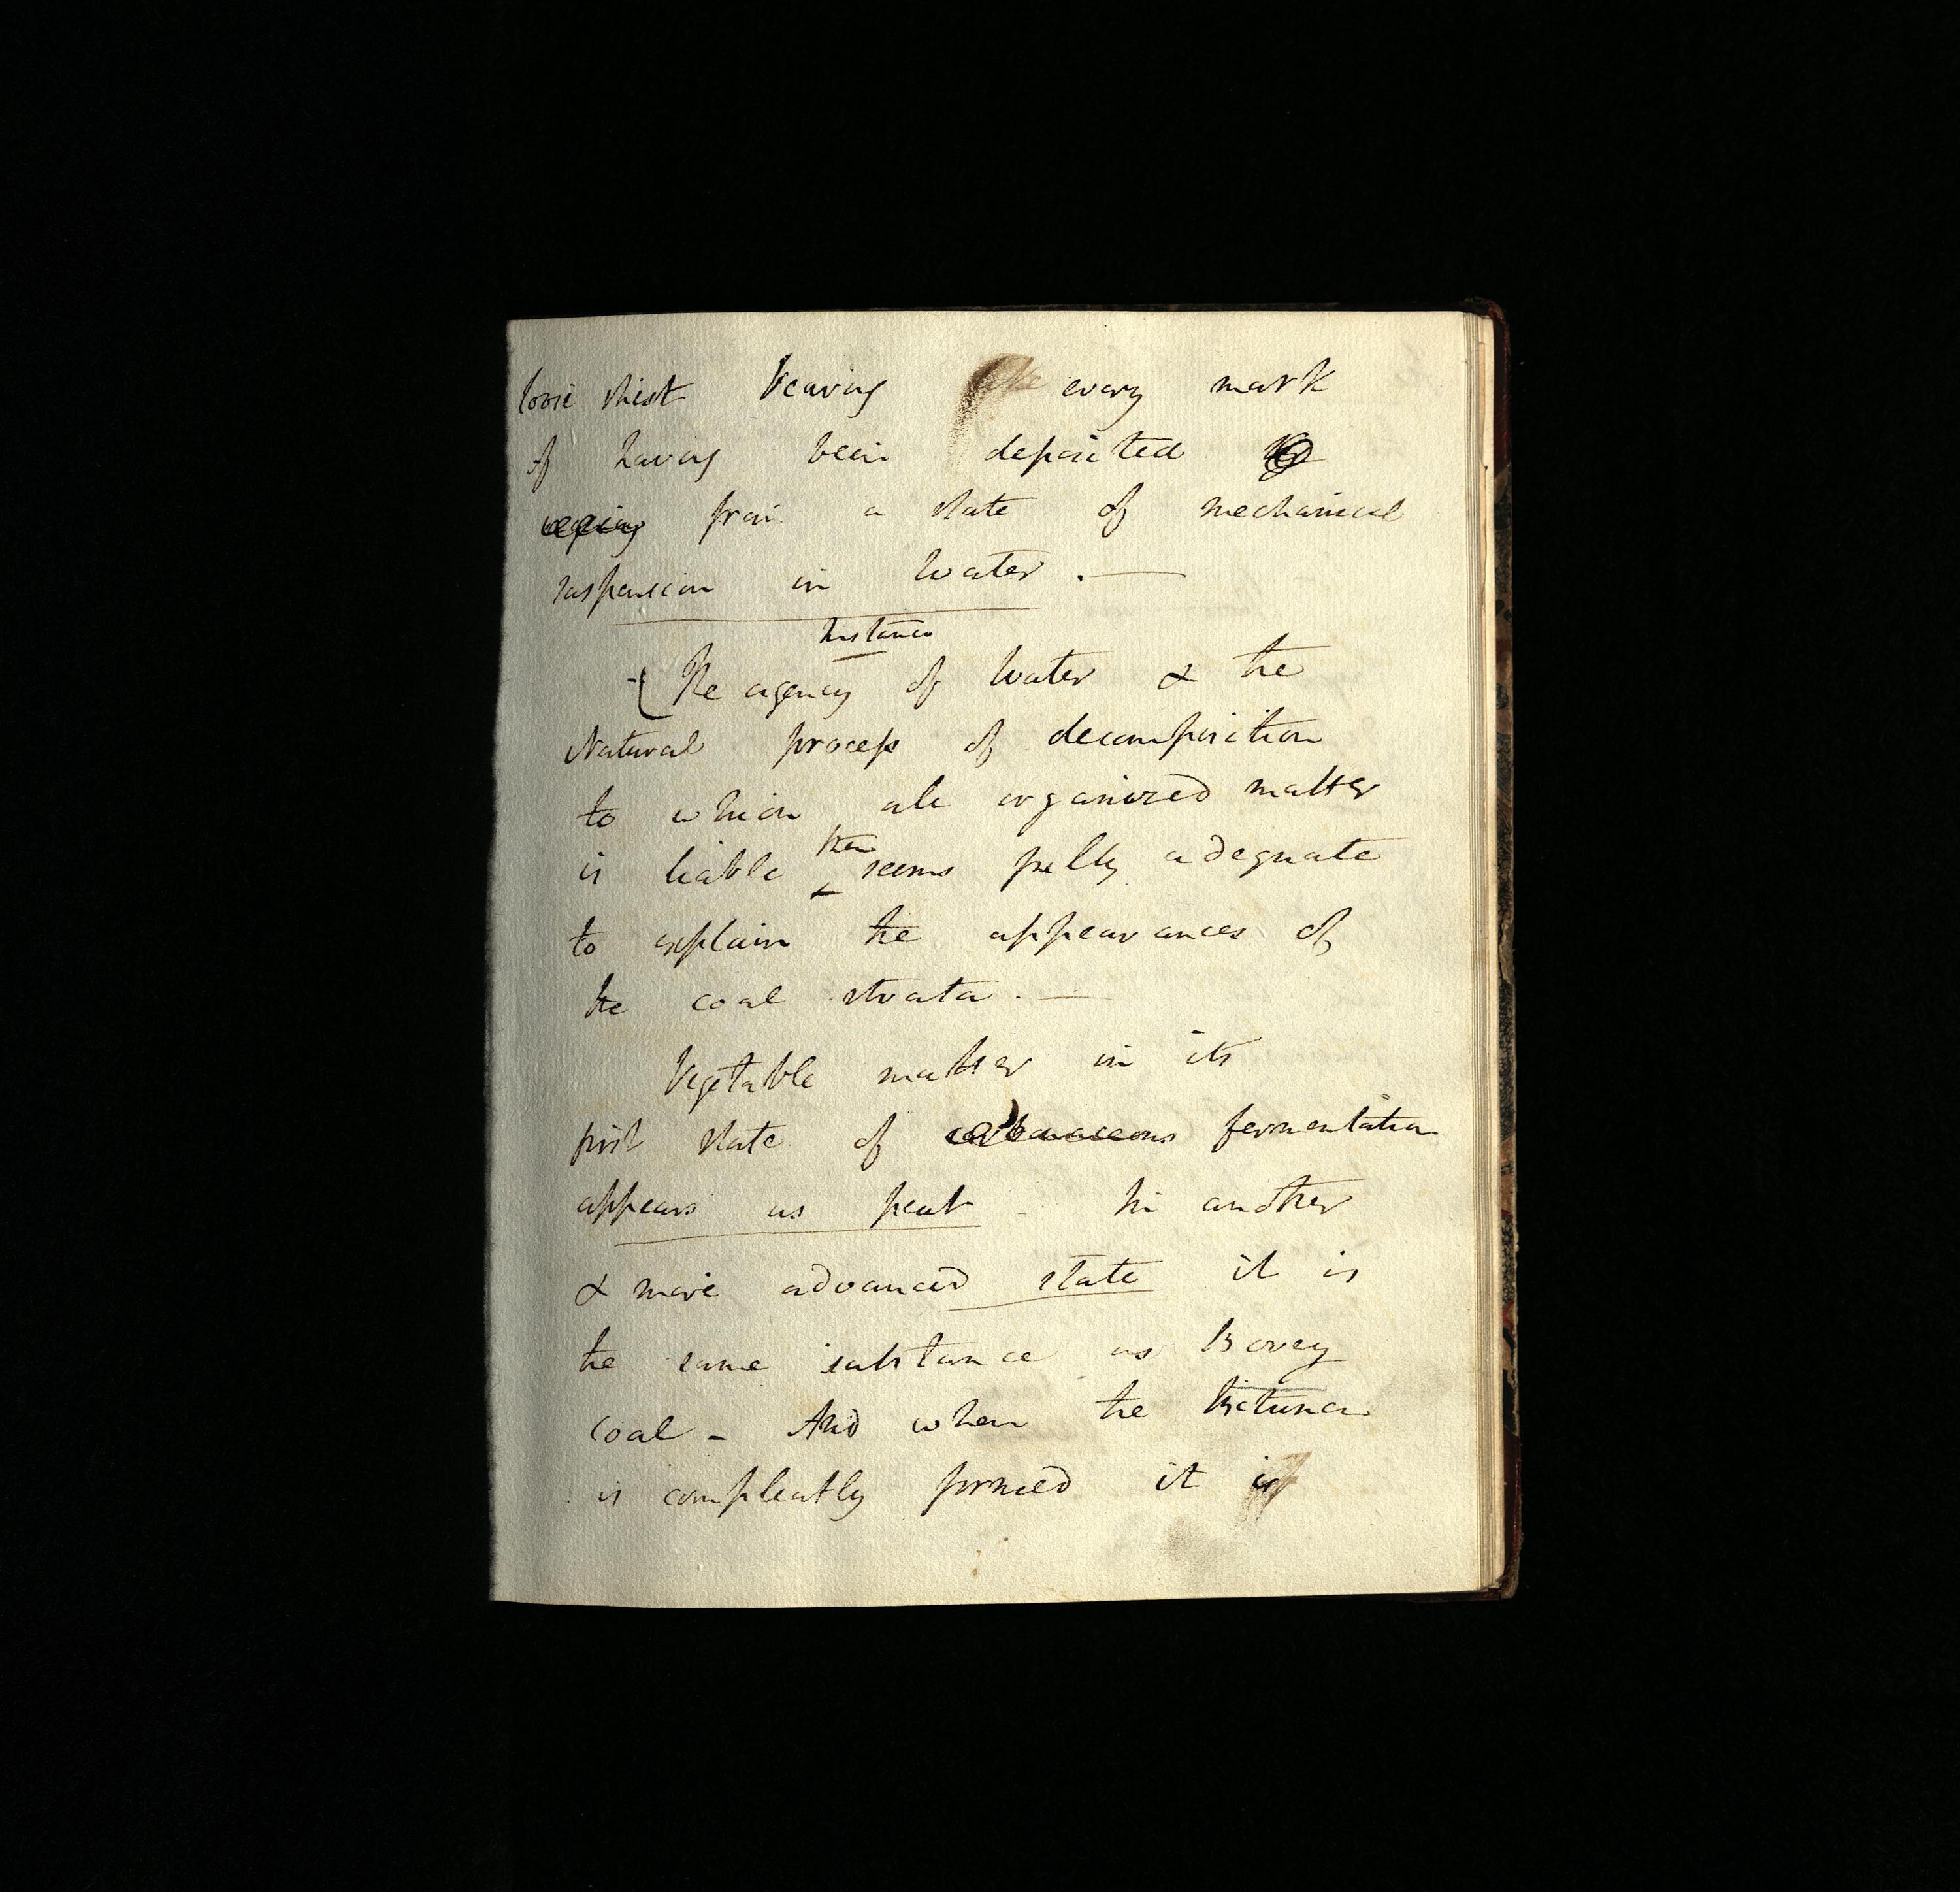 loose shist bearing every mark
of having been deposited
from a state of mechanical
suspension in water. —
Instance
- ( The agency of water & the
Natural process of decomposition
to which all organized matter
then
is liable seems fully adequate
to explain the appearances of
the coal strata. —
Vegetable matter in its
first state of carbonaceous fermentation
appears as peat - In another
& more advanced state it is
the same substance as Bovey
coal - And when the Bitumen
is compleatly formed it is